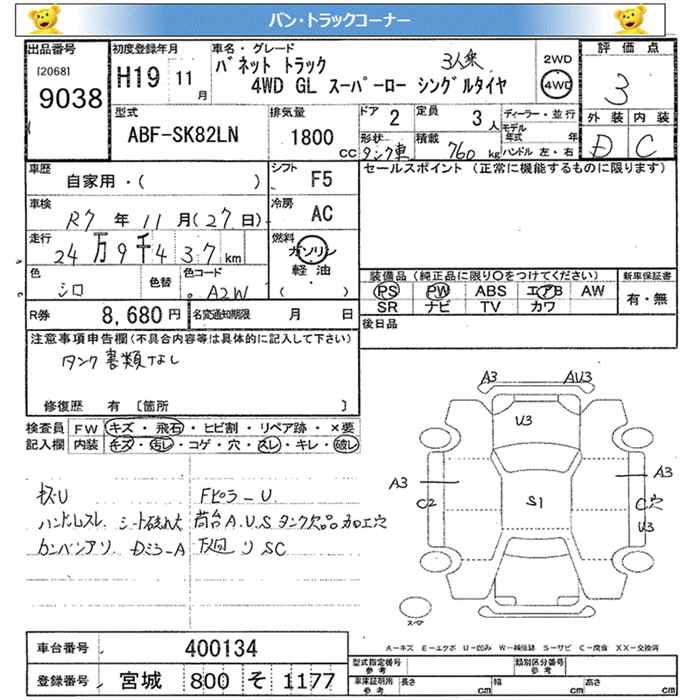 バン・トラックコーナー
出品番号 初度登録年月 車名・グレード 3人乗 2WD 評価点
[2068] 9038 H19 11月 バネット トラック 4WD GL スーパーロー シングルタイヤ 4WD 3
型式 排気量 ドア 2 定員 3人 ディーラー・並行 外装 内装
ABF-SK82LN 1800CC 形状 タンク車 積載 760kg モデル年式 年 ハンドル 左・右 D C
車歴 自家用・( ) シフト F5 セールスポイント (正常に機能するものに限ります)
車検 R7年11月(27日) 冷房 AC
走行 24万9千437km 燃料 ガソリン 軽油 ( )
色 シロ 色替 色コード A2W 装備品 (純正品に限り○をつけてください) 新車保証書
PS PW ABS エアB AW 有・無
R券 8,680円 名変通知期限 月 日 SR ナビ TV カワ
注意事項申告欄(不具合内容等は具体的に記入して下さい) 後日品
タンク書類なし
修復歴 有 [箇所 ]
検査員 FW キズ・飛石・ヒビ割・リペア跡・×要
記入欄 内装 キズ・汚レ・コゲ・穴・スレ・キレ・破レ
A3 AU3
U3
A3 A3
C2 S1 C穴
U3
Fピラ-U
ハンドルスレ シート破れ大 荷台A.U.S タンク欠品 加工穴
カンバンアリ Dミラ-A 下廻リSC
スペア
A-キズ E-エクボ U-凹み W-補修跡 S-サビ C-腐食 XX-交換済
車台番号 400134
型式指定番号 参考 類別区分番号 参考
登録番号 宮城 800 そ 1177
車庫証明所 参考 長さ cm 幅 cm 高さ cm